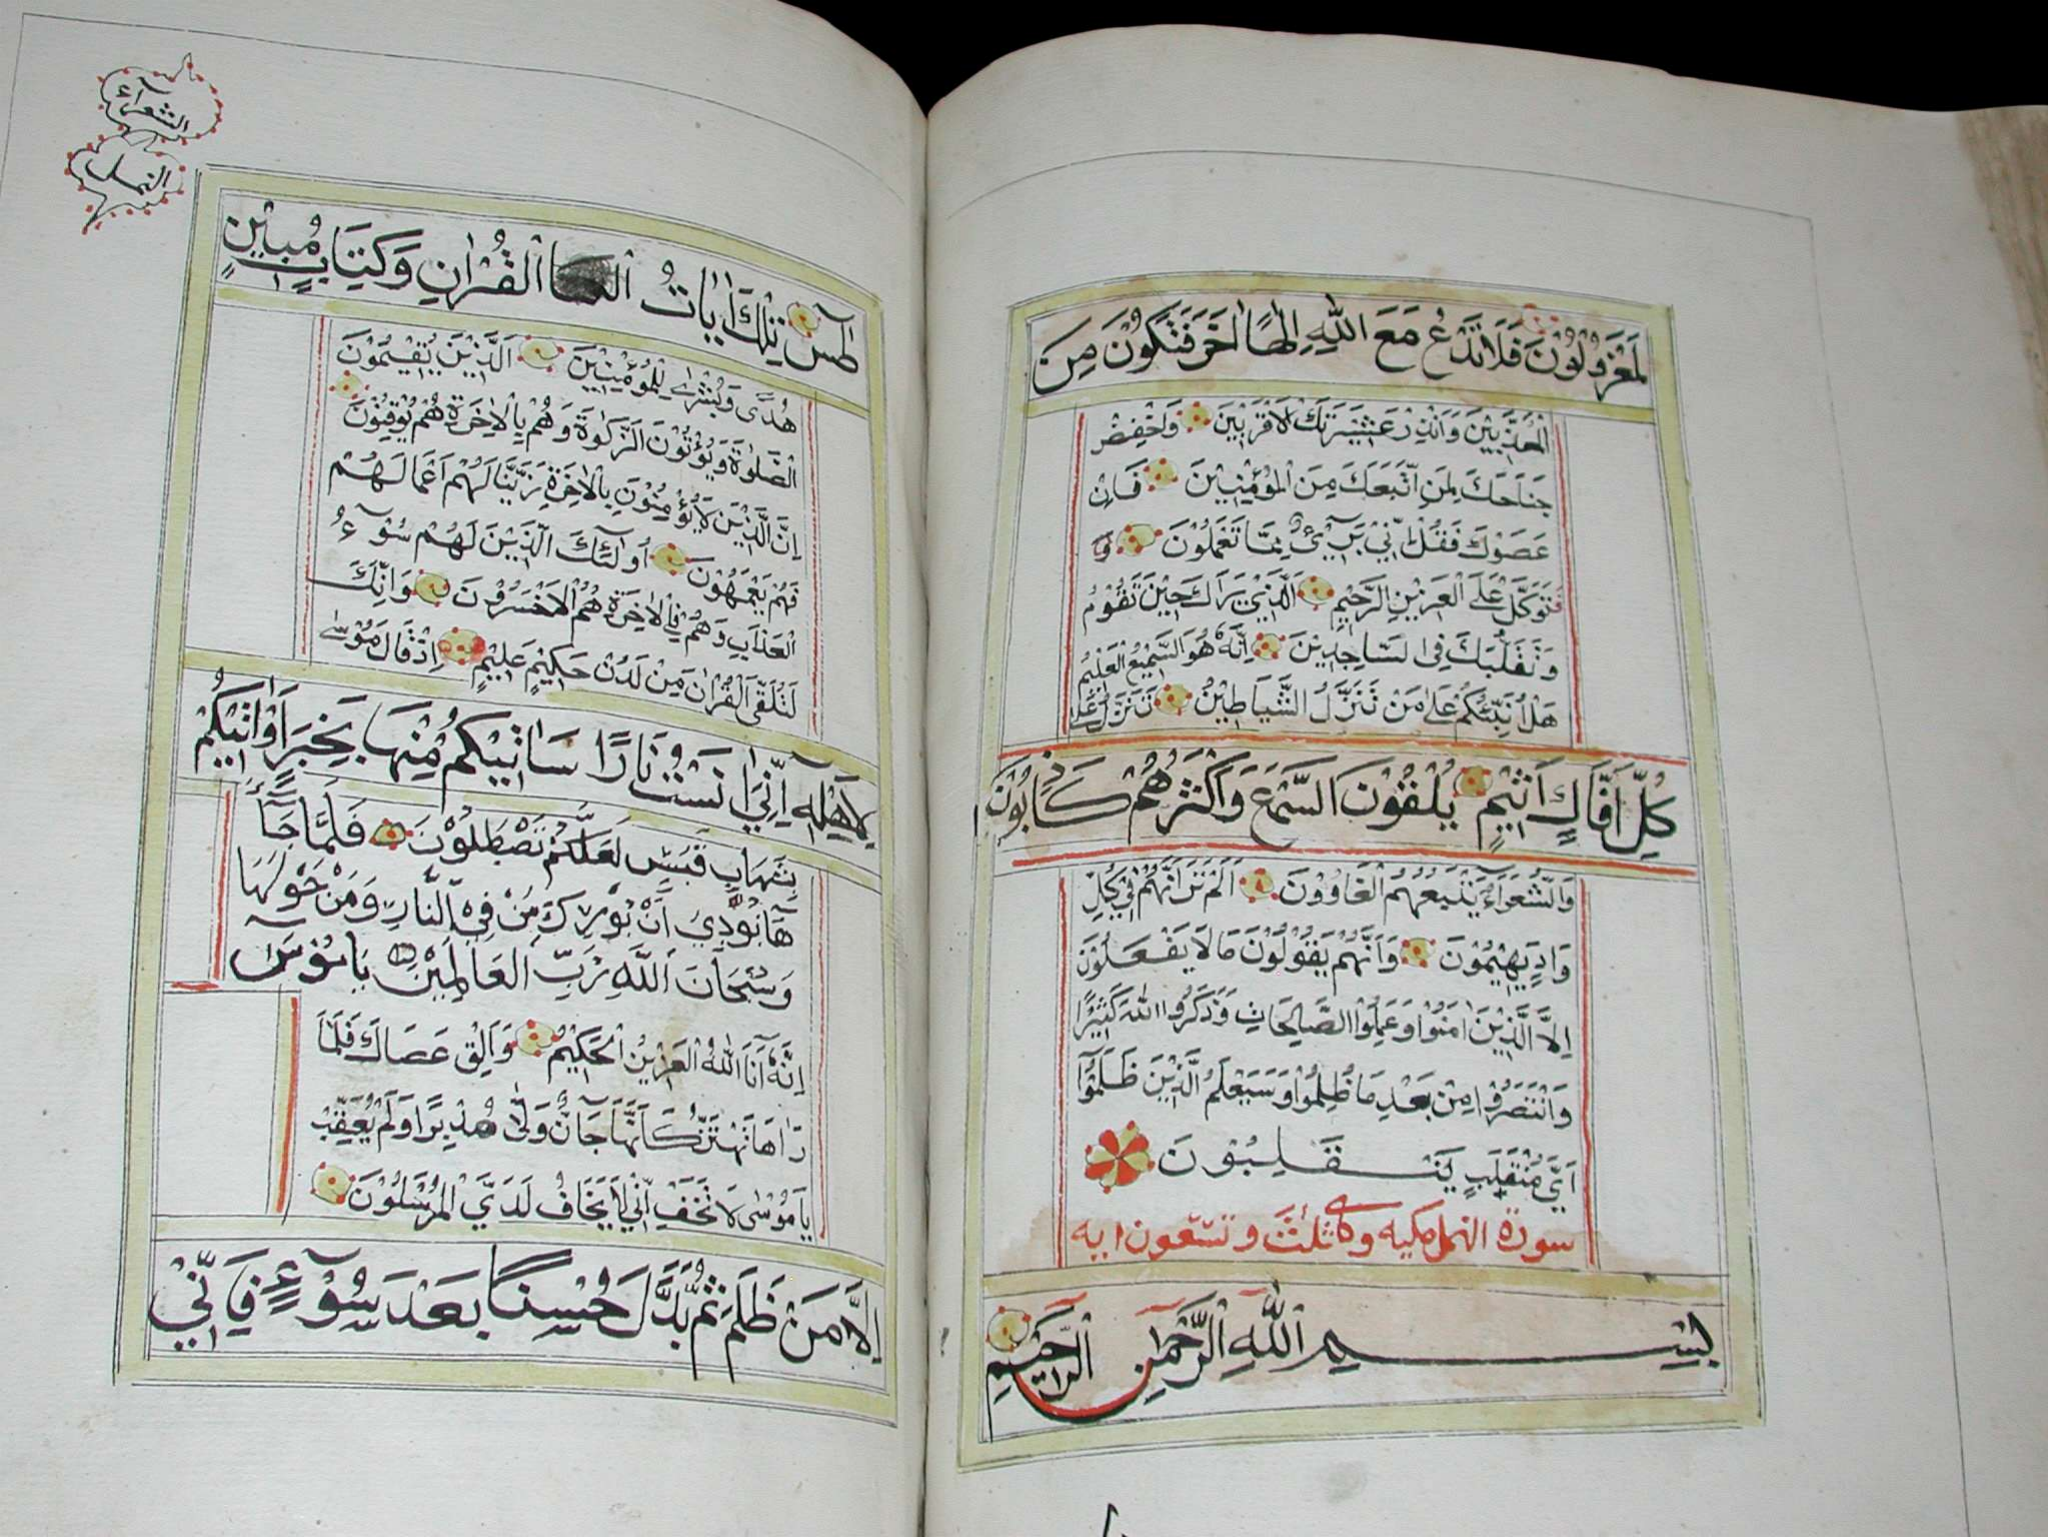 لَمَعْزُولُونَ فَلَا تَدْعُ مَعَ اللّٰهِ اِلٰهًا اٰخَرَ فَتَكُوْنَ مِنَ
الْمُعَذَّبِيْنَ وَاَنْذِرْ عَشِيْرَتَكَ الْاَقْرَبِيْنَ وَاخْفِضْ
جَنَاحَكَ لِمَنِ اتَّبَعَكَ مِنَ الْمُؤْمِنِيْنَ فَاِنْ
عَصَوْكَ فَقُلْ اِنِّي بَرِيْۤئٌ مِمَّا تَعْمَلُوْنَ وَ
فَتَوَكَّلْ عَلَى الْعَزِيْزِ الرَّحِيْمِ الَّذِيْ يَرَاكَ حِيْنَ تَقُوْمُ
وَتَقَلُّبَكَ فِي السَّاجِدِيْنَ اِنَّهُ هُوَ السَّمِيْعُ الْعَلِيْمُ
هَلْ اُنَبِّئُكُمْ عَلٰى مَنْ تَنَزَّلُ الشَّيَاطِيْنُ تَنَزَّلُ عَلٰى
كُلِّ اَفَّاكٍ اَثِيْمٍ يُلْقُوْنَ السَّمْعَ وَاَكْثَرُهُمْ كَاذِبُوْنَ
وَالشُّعَرَاۤءُ يَتَّبِعُهُمُ الْغَاوُوْنَ اَلَمْ تَرَ اَنَّهُمْ فِيْ كُلِّ
وَادٍ يَهِيْمُوْنَ وَاَنَّهُمْ يَقُوْلُوْنَ مَا لَا يَفْعَلُوْنَ
اِلَّا الَّذِيْنَ اٰمَنُوْا وَعَمِلُوا الصَّالِحَاتِ وَذَكَرُوا اللّٰهَ كَثِيْرًا
وَانْتَصَرُوْا مِنْ بَعْدِ مَا ظُلِمُوْا وَسَيَعْلَمُ الَّذِيْنَ ظَلَمُوْۤا
اَيَّ مُنْقَلَبٍ يَنْقَلِبُوْنَ
سورة النمل مكيه وهى ثلث وتسعون ايه
بِسْمِ اللّٰهِ الرَّحْمٰنِ الرَّحِيْمِ
الشعرآء
النمل
طٰسۤ تِلْكَ اٰيَاتُ الْقُرْاٰنِ وَكِتَابٍ مُبِيْنٍ
هُدًى وَبُشْرٰى لِلْمُؤْمِنِيْنَ اَلَّذِيْنَ يُقِيْمُوْنَ
الصَّلٰوةَ وَيُؤْتُوْنَ الزَّكٰوةَ وَهُمْ بِالْاٰخِرَةِ هُمْ يُوْقِنُوْنَ
اِنَّ الَّذِيْنَ لَا يُؤْمِنُوْنَ بِالْاٰخِرَةِ زَيَّنَّا لَهُمْ اَعْمَالَهُمْ
فَهُمْ يَعْمَهُوْنَ اُولٰۤئِكَ الَّذِيْنَ لَهُمْ سُوْۤءُ
الْعَذَابِ وَهُمْ فِي الْاٰخِرَةِ هُمُ الْاَخْسَرُوْنَ وَاِنَّكَ
لَتُلَقَّى الْقُرْاٰنَ مِنْ لَدُنْ حَكِيْمٍ عَلِيْمٍ اِذْ قَالَ مُوْسٰى
لِاَهْلِهِ اِنِّيْ اٰنَسْتُ نَارًا سَاٰتِيْكُمْ مِنْهَا بِخَبَرٍ اَوْ اٰتِيْكُمْ
بِشِهَابٍ قَبَسٍ لَعَلَّكُمْ تَصْطَلُوْنَ فَلَمَّا جَاۤءَ
هَا نُوْدِيَ اَنْ بُوْرِكَ مَنْ فِي النَّارِ وَمَنْ حَوْلَهَا
وَسُبْحَانَ اللّٰهِ رَبِّ الْعَالَمِيْنَ يَا مُوْسٰۤى
اِنَّهُ اَنَا اللّٰهُ الْعَزِيْزُ الْحَكِيْمُ وَاَلْقِ عَصَاكَ فَلَمَّا
رَاٰهَا تَهْتَزُّ كَاَنَّهَا جَاۤنٌّ وَلّٰى مُدْبِرًا وَلَمْ يُعَقِّبْ
يَا مُوْسٰى لَا تَخَفْ اِنِّي لَا يَخَافُ لَدَيَّ الْمُرْسَلُوْنَ
اِلَّا مَنْ ظَلَمَ ثُمَّ بَدَّلَ حُسْنًا بَعْدَ سُوْۤءٍ فَاِنِّيْ